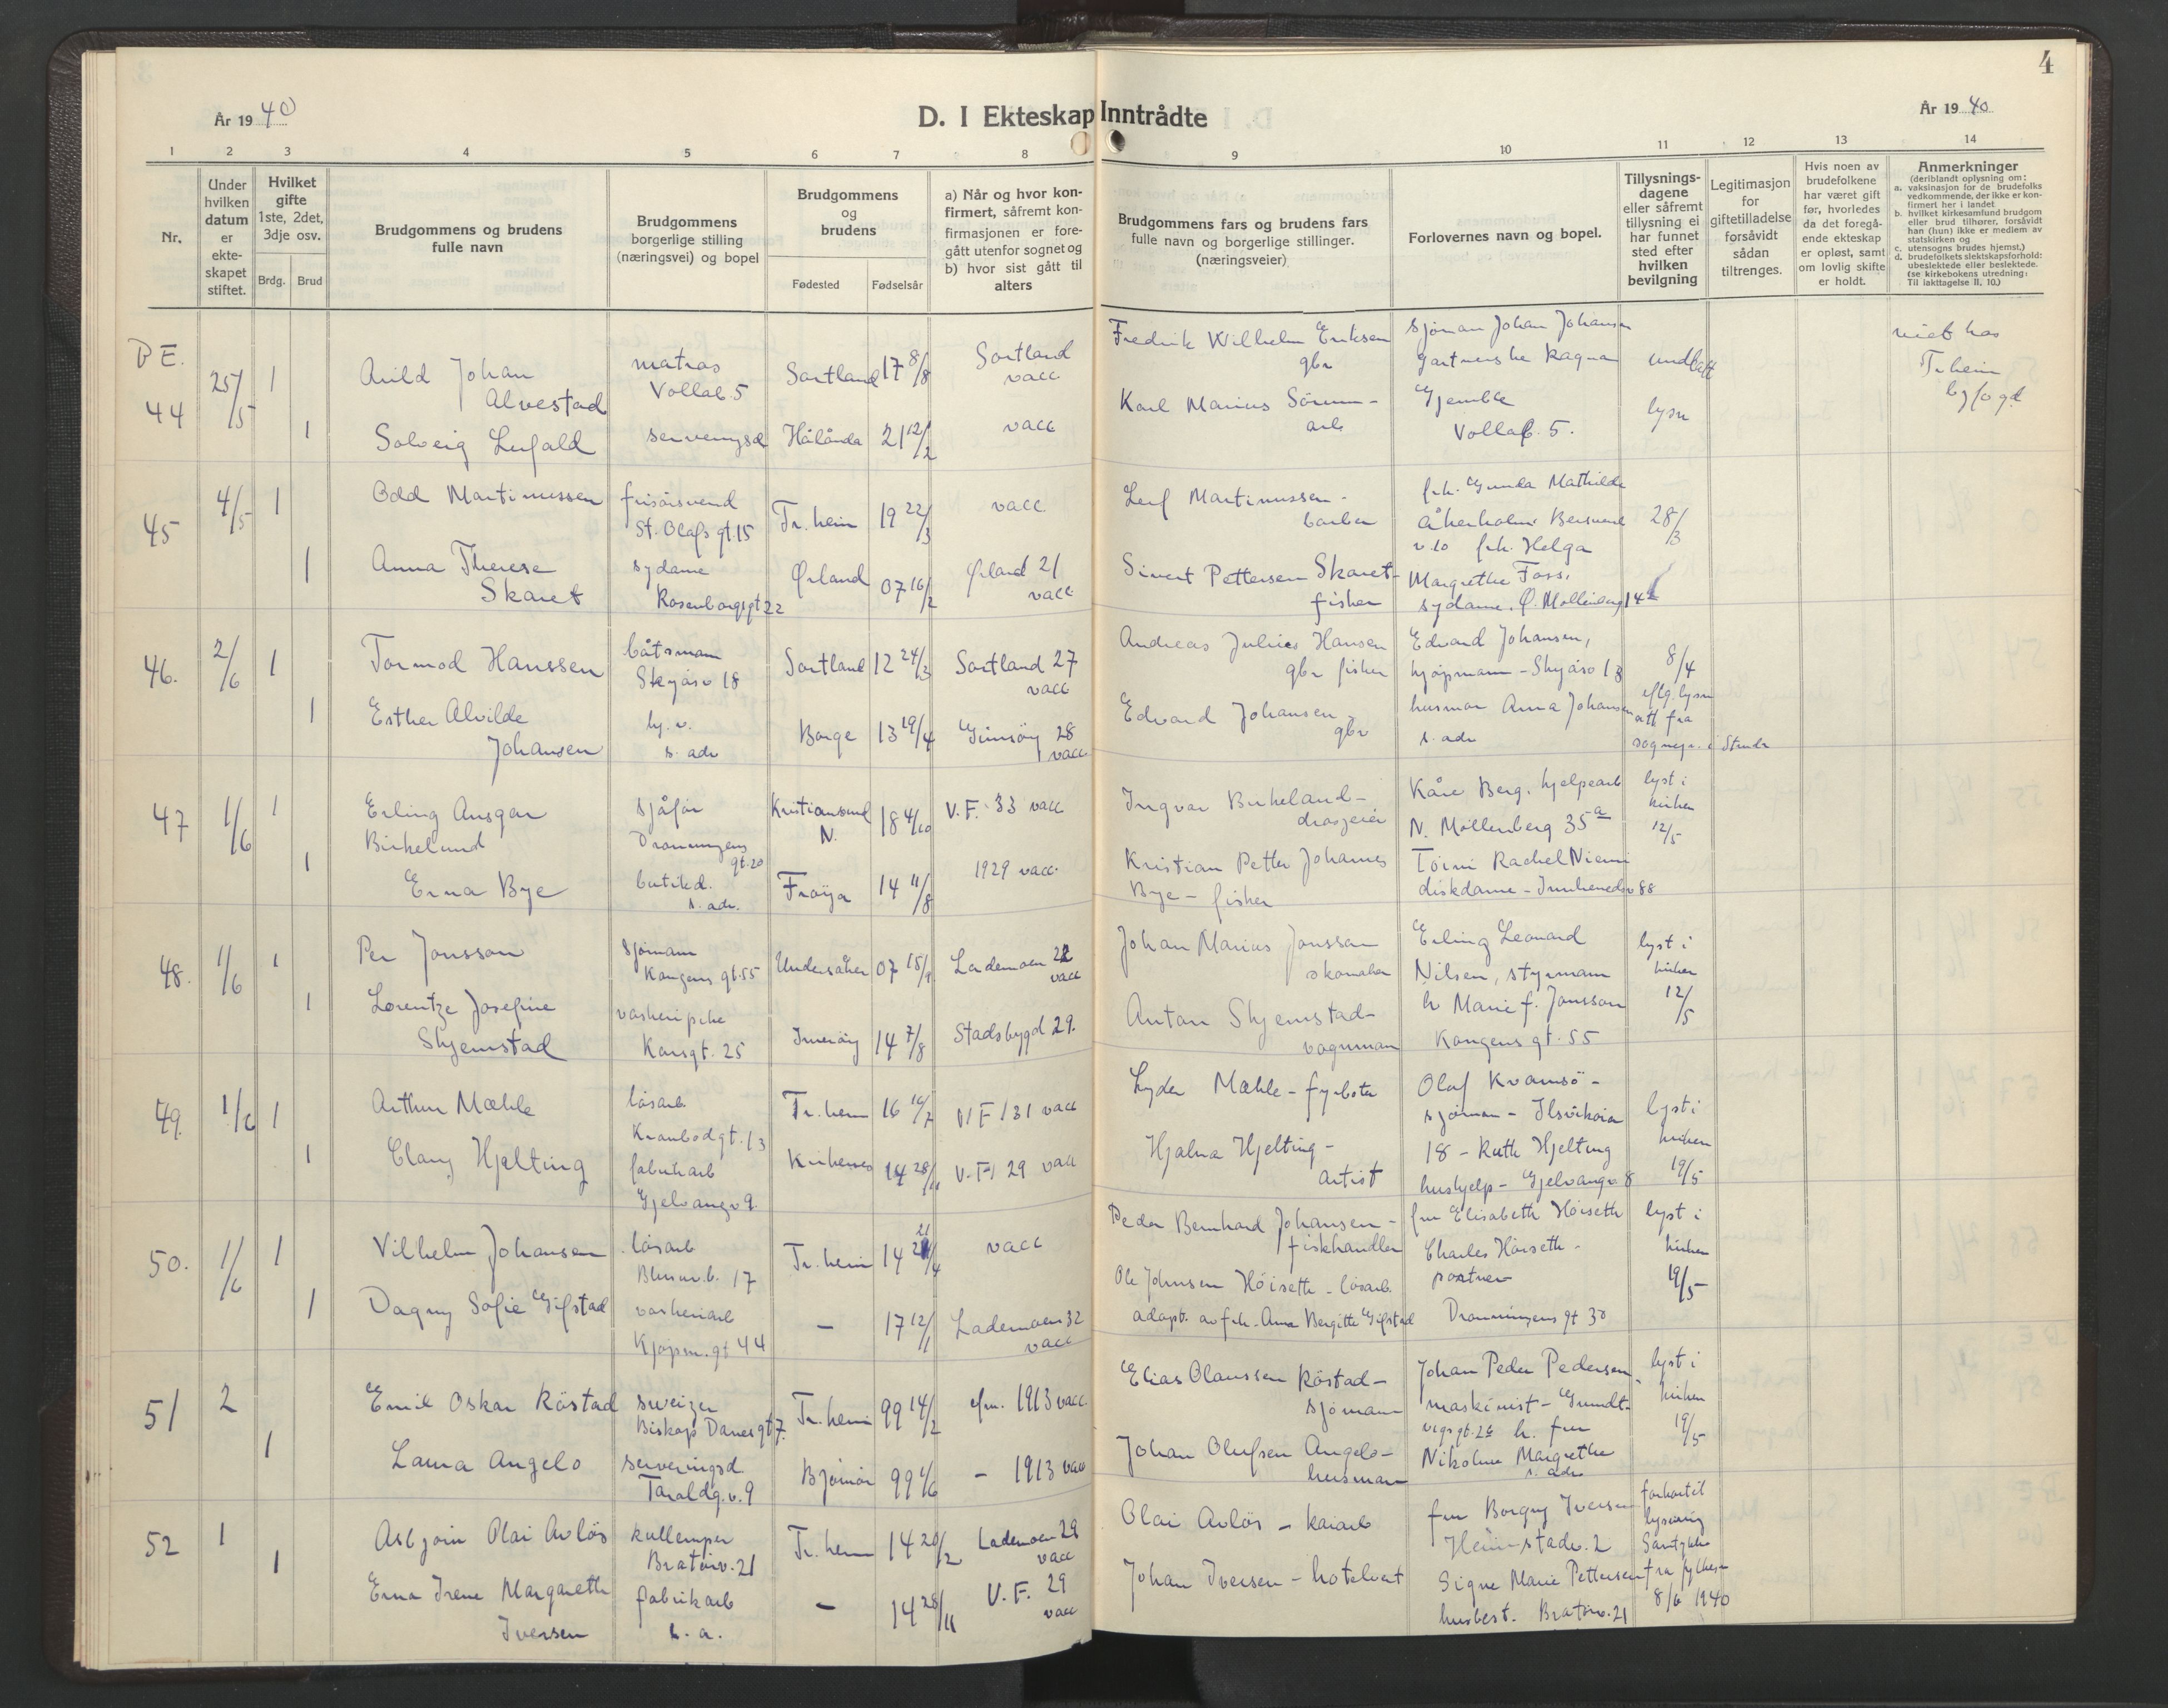 4
År 1940
D. I Ekteskap Inntrådte
År 1940
1 2 3 4 5 6 7 8 9 10 11 12 13 14
Nr.
Under hvilken datum er ekte-skapet stiftet.
Hvilket gifte 1ste, 2det, 3dje osv.
Brdg. Brud
Brudgommens og brudens fulle navn
Brudgommens borgerlige stilling (næringsvei) og bopel
Brudgommens og brudens
Fødested Fødselsår
a) Når og hvor kon-firmert, såfremt kon-firmasjonen er fore-gått utenfor sognet og b) hvor sist gått til alters
Brudgommens fars og brudens fars fulle navn og borgerlige stillinger. (næringsveier)
Forlovernes navn og bopel.
Tillysnings-dagene eller såfremt tillysning ei har funnet sted efter hvilken bevilgning
Legitimasjon for giftetilladelse forsåvidt sådan tiltrenges.
Hvis noen av brudefolkene har været gift før, hvorledes da det foregå-ende ekteskap er opløst, samt om lovlig skifte er holdt.
Anmerkninger
(deriblandt oplysning om:
a. vaksinasjon for de brudefolks vedkommende, der ikke er kon-firmert her i landet
b. hvilket kirkesamfund brudgom eller brud tilhører, forsåvidt han (hun) ikke er medlem av statskirken og
c. utensogns brudes hjemst.)
d. brudefolkets slektskapsforhold: ubeslektede eller beslektede. (se kirkebokens utredning: Til iakttagelse II. 10.)
44 25/5 1 Arild Johan Alvestad matros Vollab. 5 Sortland 17 8/8 Sortland vacc
Fredrik Wilhelm Eriksen gbr sjöman Johan Johansen viet hos Tr.heim byfogd
1 Solveig Leifald Hålånda 21 12/2 vacc
Karl Marius vollab. 5. lysn
45 4/5 1 Odd Martinussen frisörsvend St. Olafs gt. 15 Tr. heim 19 22/3 vacc
Leif Martinussen - barber frk. Gunda Mathilde 28/3
1 Anna Therese Skaret sydame Rosenborggt 22 Ørland 07 16/2 Ørland 21 vacc
Sivert Pettersen Skaret - fisker frk. Helga Margrethe Foss, sydame, Ø. Möllenberg 14
46. 2/6 1 Tormod Hanssen båtsmann 18 Sortland 12 24/3 Sortland 27 vacc
Andreas Julius Hansen gbr fisker Edvard Johansen, kjöpmann 8/4
1 Esther Alvilde Johansen s. adr Borge 13 19/4 Gimsöy 28 vacc
Edvard Johansen - gbr husmor Anna Johansen s. adr
47 1/6 1 Erling Ansgar Birkelund sjåför Dronningens gt. 20 Kristiansund N. 18 4/10 V. F. 33 vacc
Ingvar Birkeland - Kåre Berg, hjelpearb N. Möllenberg 35a lyst i kirken 12/5
1 Erna Bye butikd. s. adr. Fröya 14 11/8 1929 vacc
Kristian Petter Johannes Bye - fisker Rachel Niemi diskdame - 88
48. 1/6 1 Per Jonsson sjömann Kongens gt. 55 Undersåker 07 15/ Lademoen 22 vacc
Johan Marius Jonsson skomaker Erling Leonard Nilsen, styrmann lyst i kirken 12/5
1 Lorentze Josefine Skjemstad vaskeripike gt. 25 Inneröy 14 7/8 Stadsbygd 29.
Anton Skjemstad - vognman Marie f. Jonsson Kongens gt. 55
49. 1/6 1 Arthur Mæhle lösarb. Kranbodgt. 13 Tr. heim 16 vacc
Lyder Mæhle - fyrböter Olaf Kvamsö - sjöman - 18 lyst i kirken 19/5
1 Clary Hjelting fabrikarb Gjelvangv 9. Kirkenes 14 28/11 V. F. 29 vacc
Hjalmar Hjelting - artist Ruth Hjelting hushjelp - Gjelvangv 8
50. 1/6 1 Vilhelm Johansen lösarb 17 Tr. heim 14 21/4 vacc
Peder Bernhard Johansen - fiskhandler fru Elisabeth Höiseth Charles Höiseth - portner lyst i kirken 19/5
1 Dagny Sofie Gifstad vaskeriarb Kjöpm. gt 44 - 17 12/11 Lademoen 32 vacc
Ole Johnsen Höiseth - lösarb. adopt. av frk. Anna Bergitte Gifstad Dronningens gt 30
51 2 Emil Oskar Röstad sveizer Biskop Dares gt 7. Tr. heim 99 14/2 1913 vacc.
Elias Olaussen Röstad - sjömann Johan Peder Pedersen maskinist - lyst i kirken 19/5
1 Laura Angelo serveringsd Taraldg. v. 9 Bjömör 99 - 1913 vacc
Johan Olufsen Angelo - husman Nikoline Margrethe s. adr
52 1 Asbjörn Olai Avlös kullemper Bratörv. 21 Tr. heim 14 20/2 Lademoen 29 vacc
Olai Avlös - kaiarb fru Borgny Iversen Heimstadv. 2 forkortet lysning
1 Erna Irene Margareth Iversen fabrikarb s. a. - 14 28/11 V. F. 29 vacc
Johan Iversen - hotelvert Signe Marie Pettersen husbest. Bratörv. 21 8/6 1940